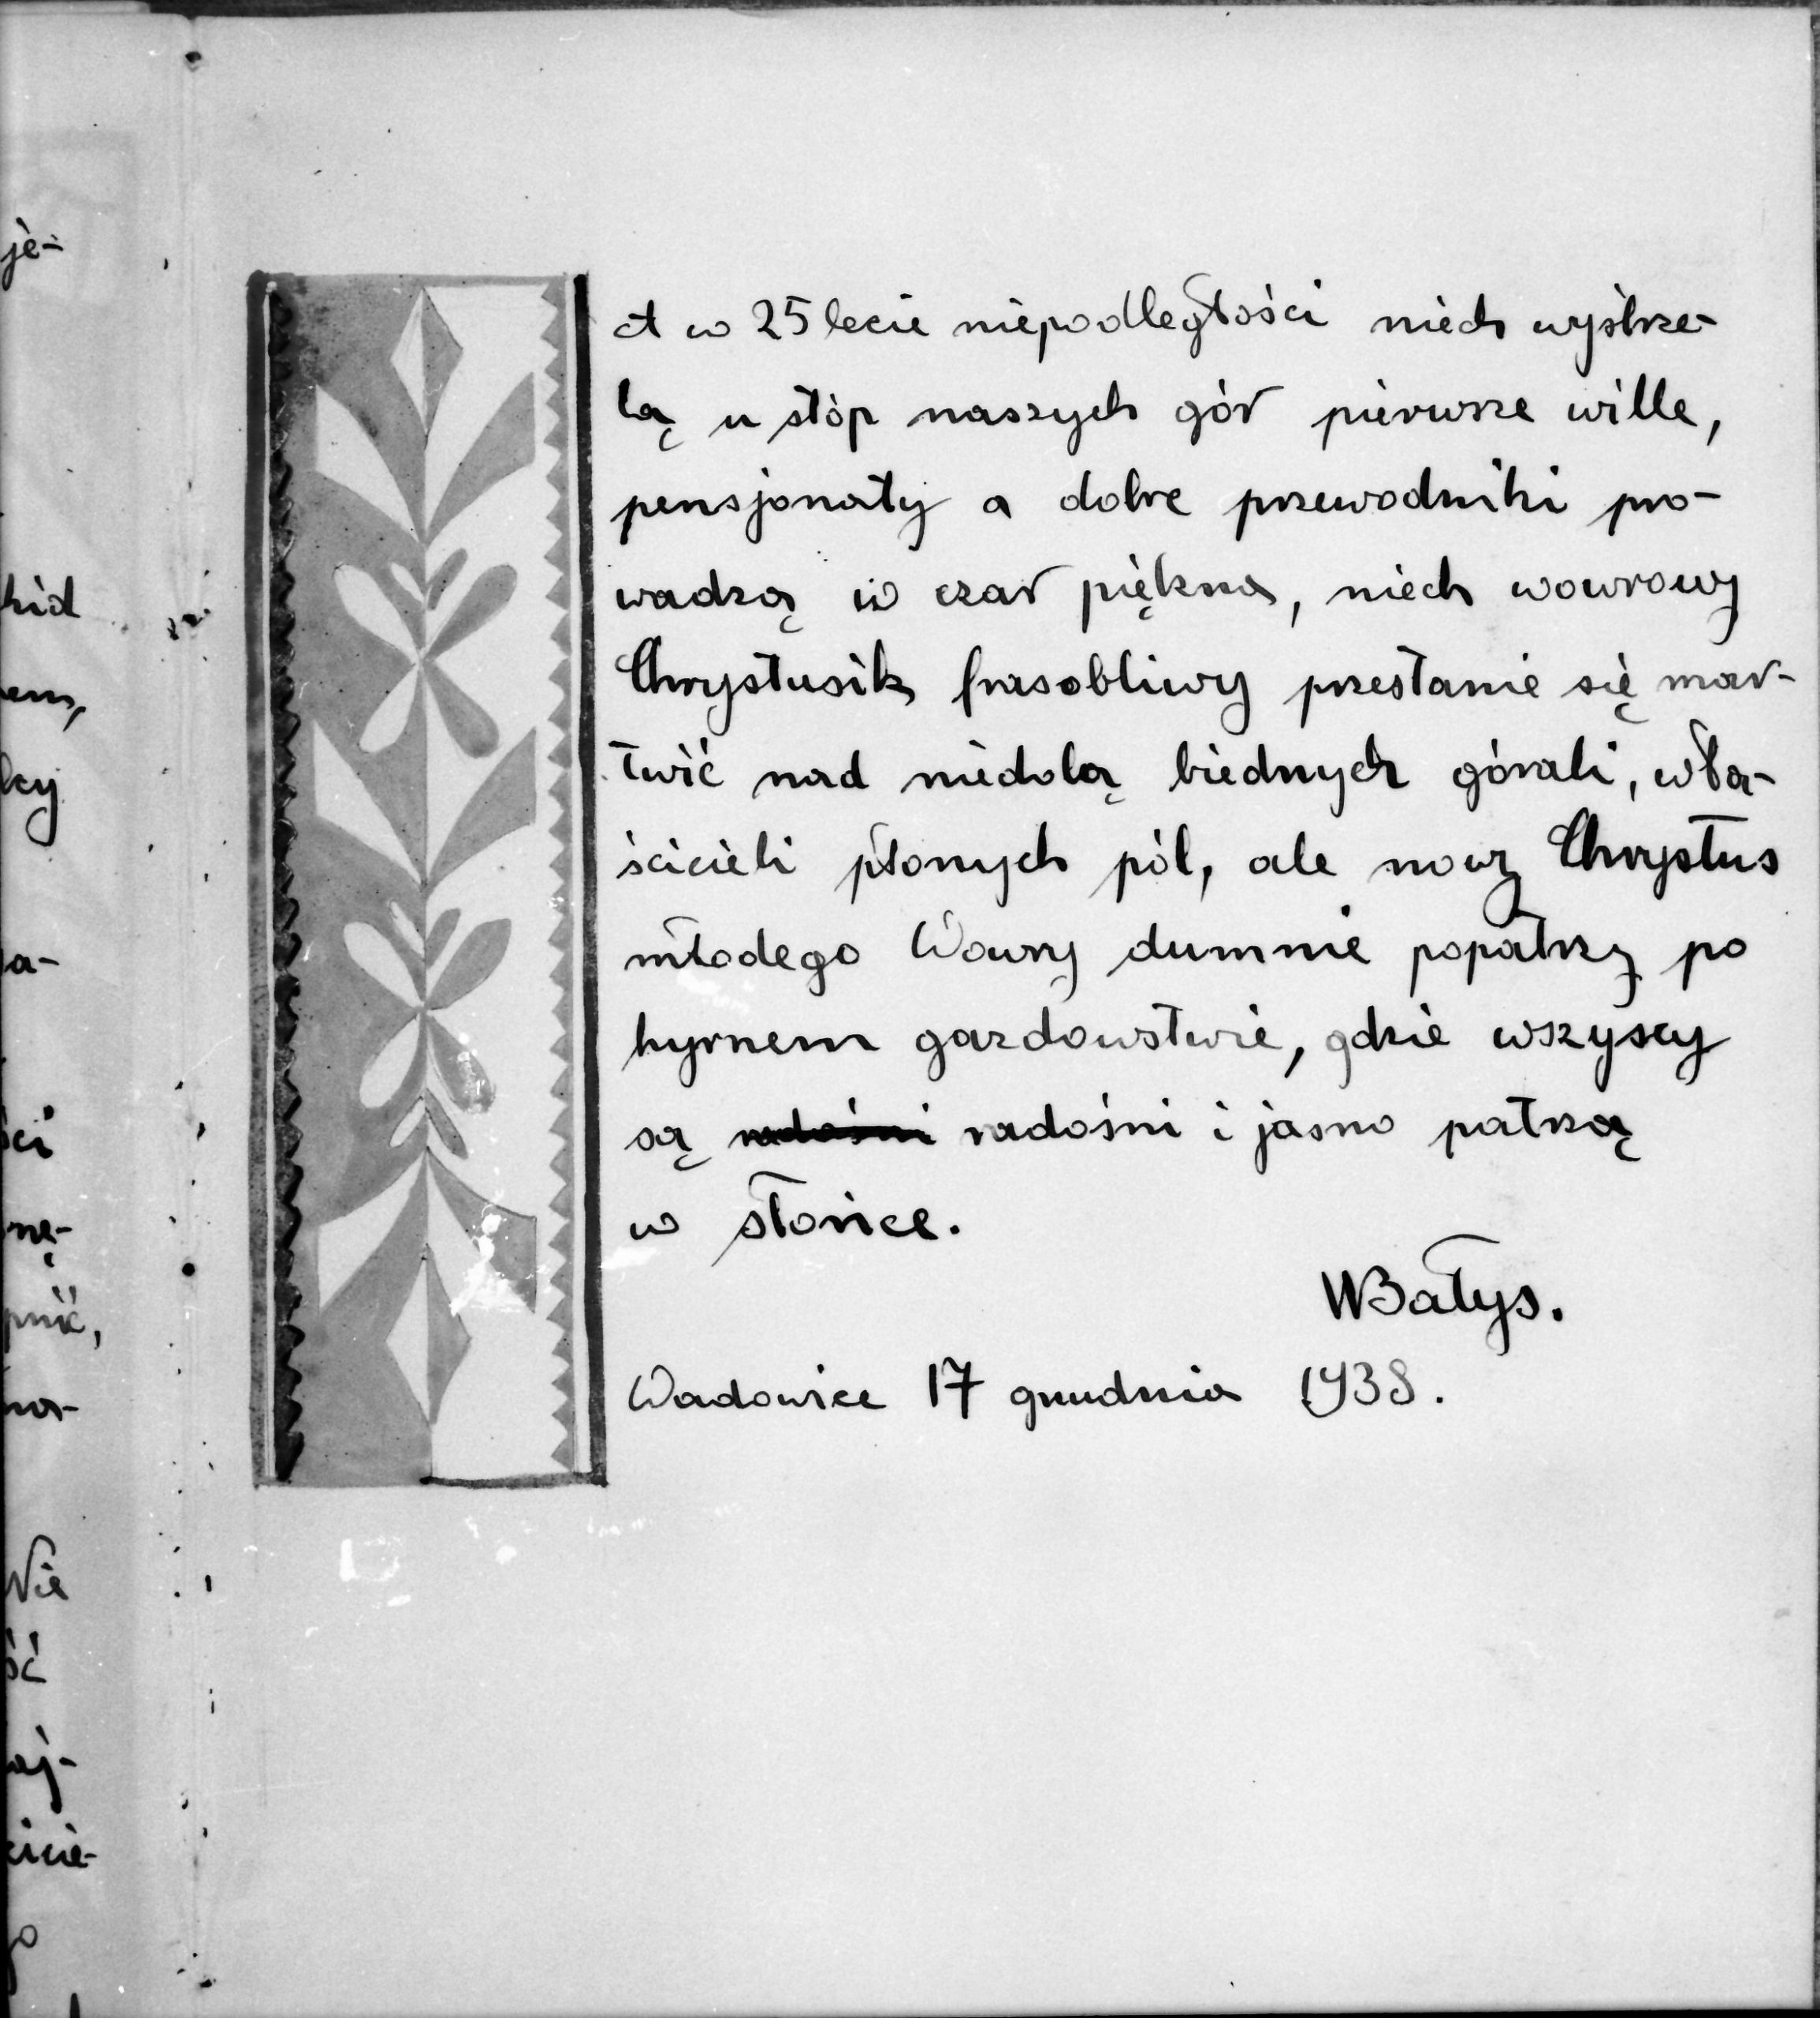 A w 25 lecie niepodległości niech wystrze-
lą u stóp naszych gór pierwsze wille,
pensjonaty a dobre przewodniki pro-
wadzą w czar piękna, niech wowrowy
Chrystusik frasobliwy przestanie się mar-
twić nad niedolą biednych górali, wła-
ścicieli płonych pól, ale nowy Chrystus
młodego Wowry dumnie popatrzy po
hyrnem gazdowstwie, gdzie wszyscy
są radośni radośni i jasno patrzą
w słońce.
WBałys.
Wadowice 17 grudnia 1938.
je-
hid
em,
ści
nę-
pnić,
na-
Nie
ść
aj-
cicie-